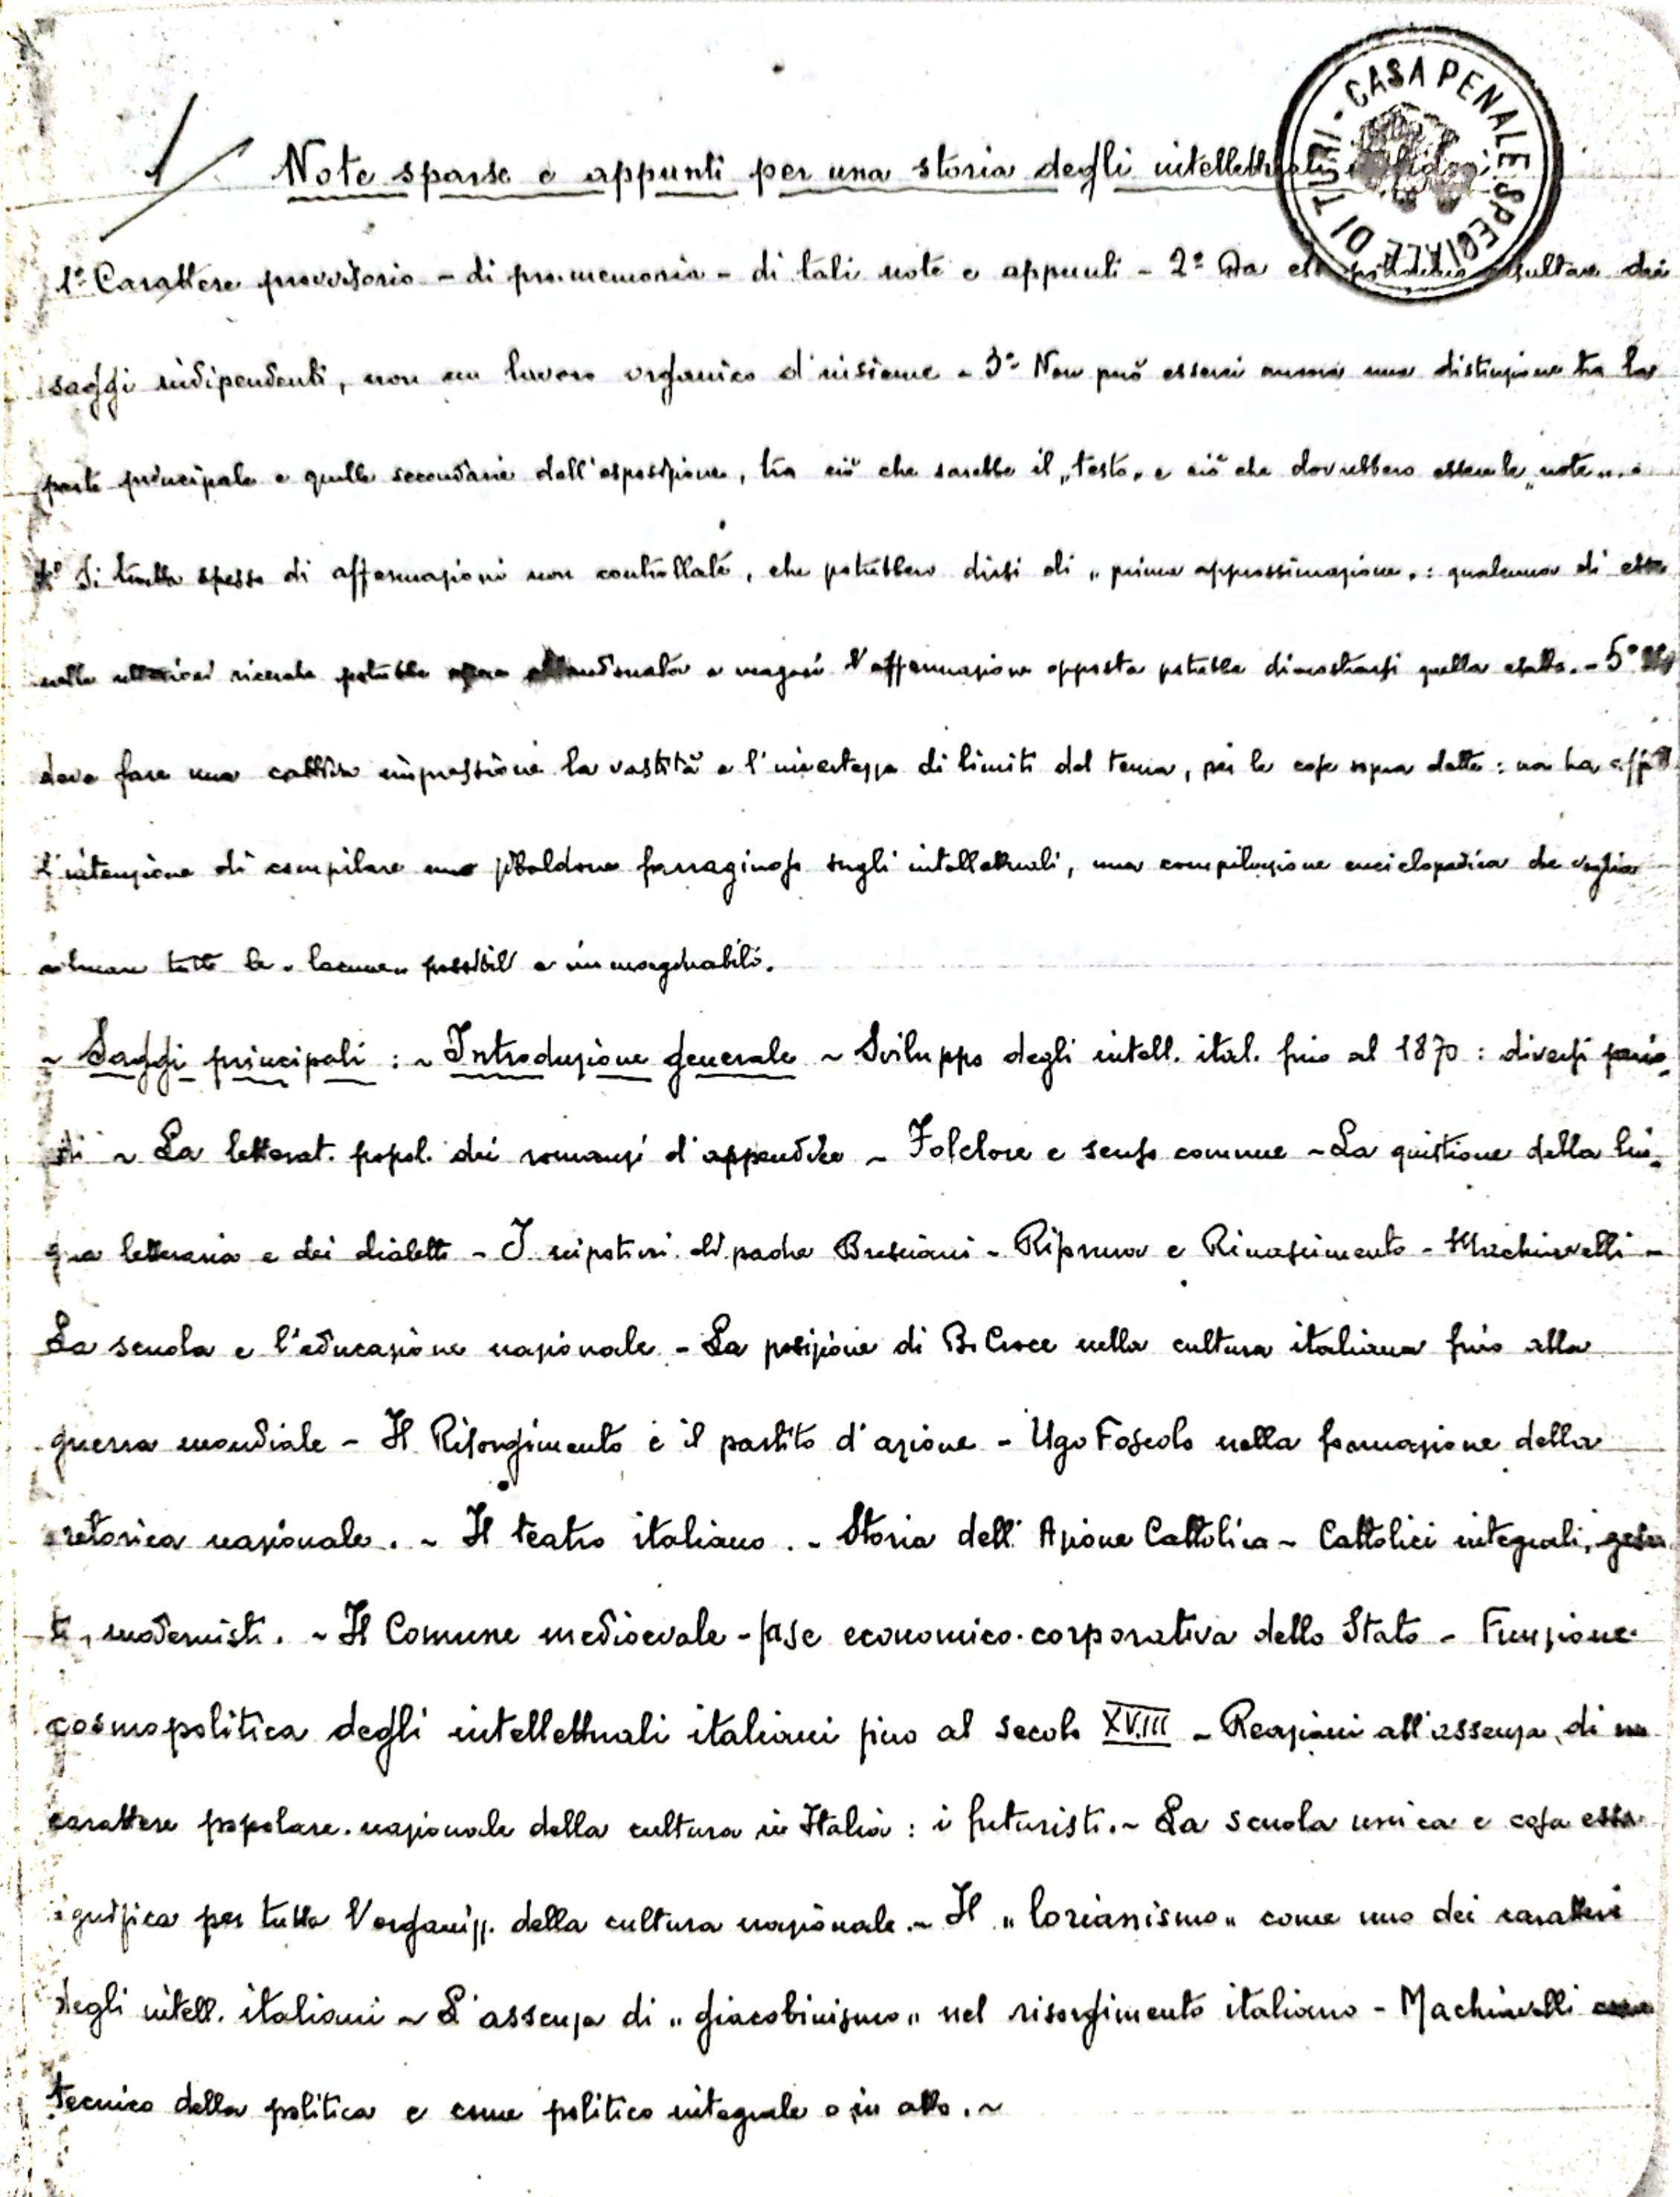 1/
Note sparse e appunti per una storia degli intellettuali italiani.
CASA PENALE SPECIALE DI TURI
1º Carattere provvisorio - di pro-memoria - di tali note e appunti - 2º Da essi potranno risultare dei
saggi indipendenti, non un lavoro organico d'insieme - 3º Non può esservi ancora una distinzione tra la
parte principale e quelle secondarie dell'esposizione, tra ciò che sarebbe il „testo„ e ciò che dovrebbero essere le „note„. -
4º Si tratta spesso di affermazioni non controllate, che potrebbero dirsi di „prima approssimazione„: qualcuna di esse
nelle ulteriori ricerche potrebbe essere abbandonata e magari l'affermazione opposta potrebbe dimostrarsi quella esatta. - 5º Non
deve fare una cattiva impressione la vastità e l'incertezza di limiti del tema, per le cose sopra dette: non ha affatto
l'intenzione di compilare uno zibaldone farraginoso sugli intellettuali, una compilazione enciclopedica che voglia
colmare tutte le „lacune„ possibili e immaginabili.
~ Saggi principali: ~ Introduzione generale ~ Sviluppo degli intell. ital. fino al 1870: diversi perio-
di ~ La letterat. popol. dei romanzi d'appendice ~ Folclore e senso comune ~ La quistione della lin-
gua letteraria e dei dialetti - I nipotini di padre Bresciani - Riforma e Rinascimento - Machiavelli -
La scuola e l'educazione nazionale - La posizione di B. Croce nella cultura italiana fino alla
guerra mondiale - Il Risorgimento e il partito d'azione - Ugo Foscolo nella formazione della
retorica nazionale. ~ Il teatro italiano. - Storia dell'Azione Cattolica ~ Cattolici integrali, gesui-
ti, modernisti. ~ Il Comune medioevale - fase economico-corporativa dello Stato - Funzione
cosmopolitica degli intellettuali italiani fino al secolo XVIII - Reazioni all'assenza di un
carattere popolare-nazionale della cultura in Italia: i futuristi. ~ La scuola unica e cosa essa
significa per tutta l'organizz. della cultura nazionale. ~ Il „lorianismo„ come uno dei caratteri
degli intell. italiani ~ L'assenza di „giacobinismo„ nel risorgimento italiano - Machiavelli come
tecnico della politica e come politico integrale o in atto. ~